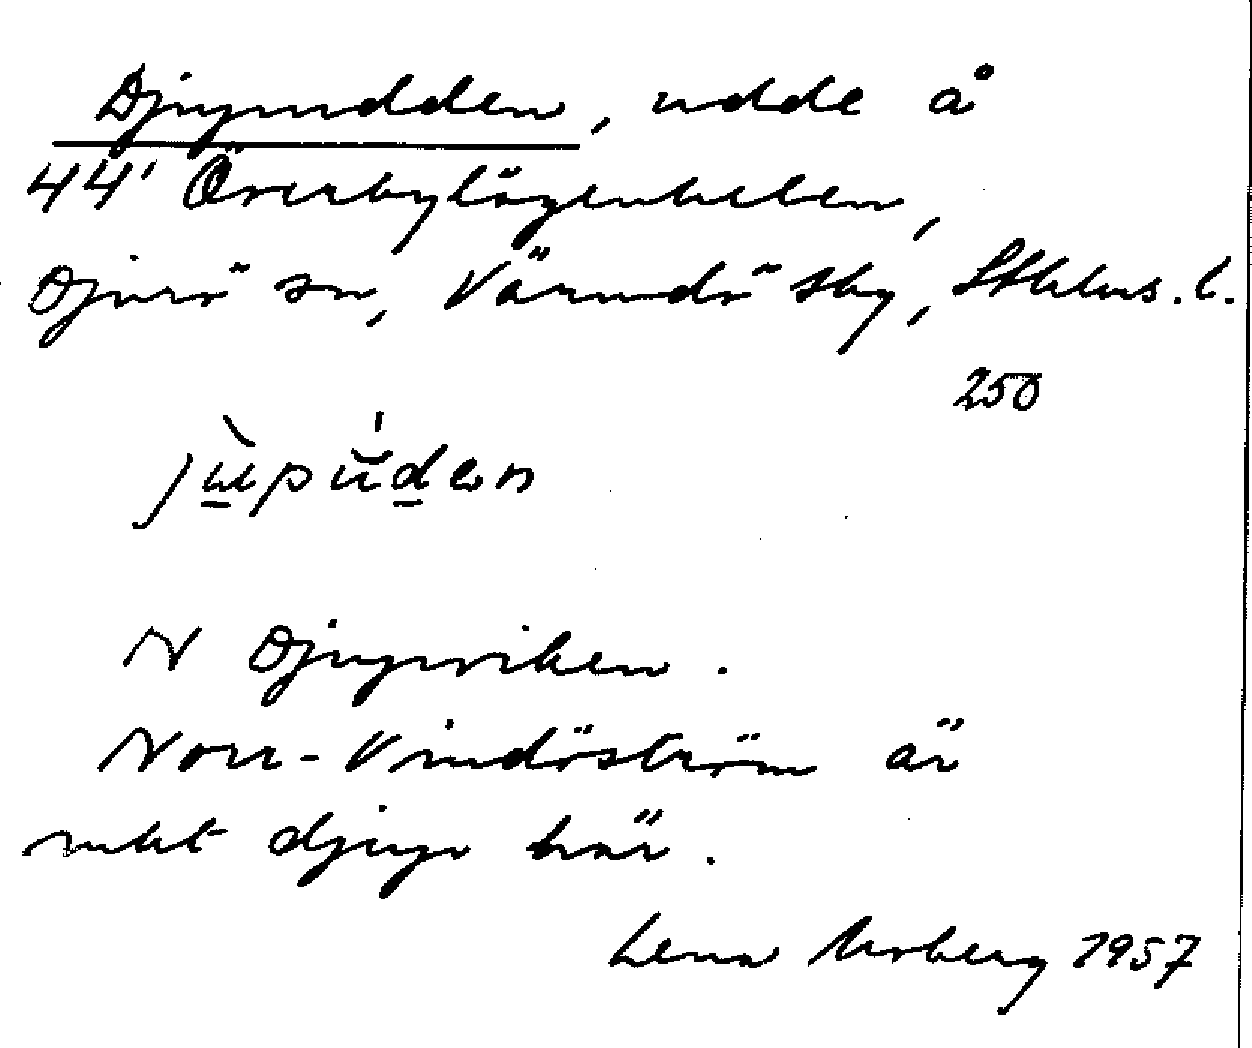 Djupudden, udde å
44' Överbylägenheten,
Djurö sn, Värmdö sky, Sthlms. l.
250
jùpúden
N Djupviken.
Norr-Vindöström är
mkt djup här.
Lena Moberg 1957